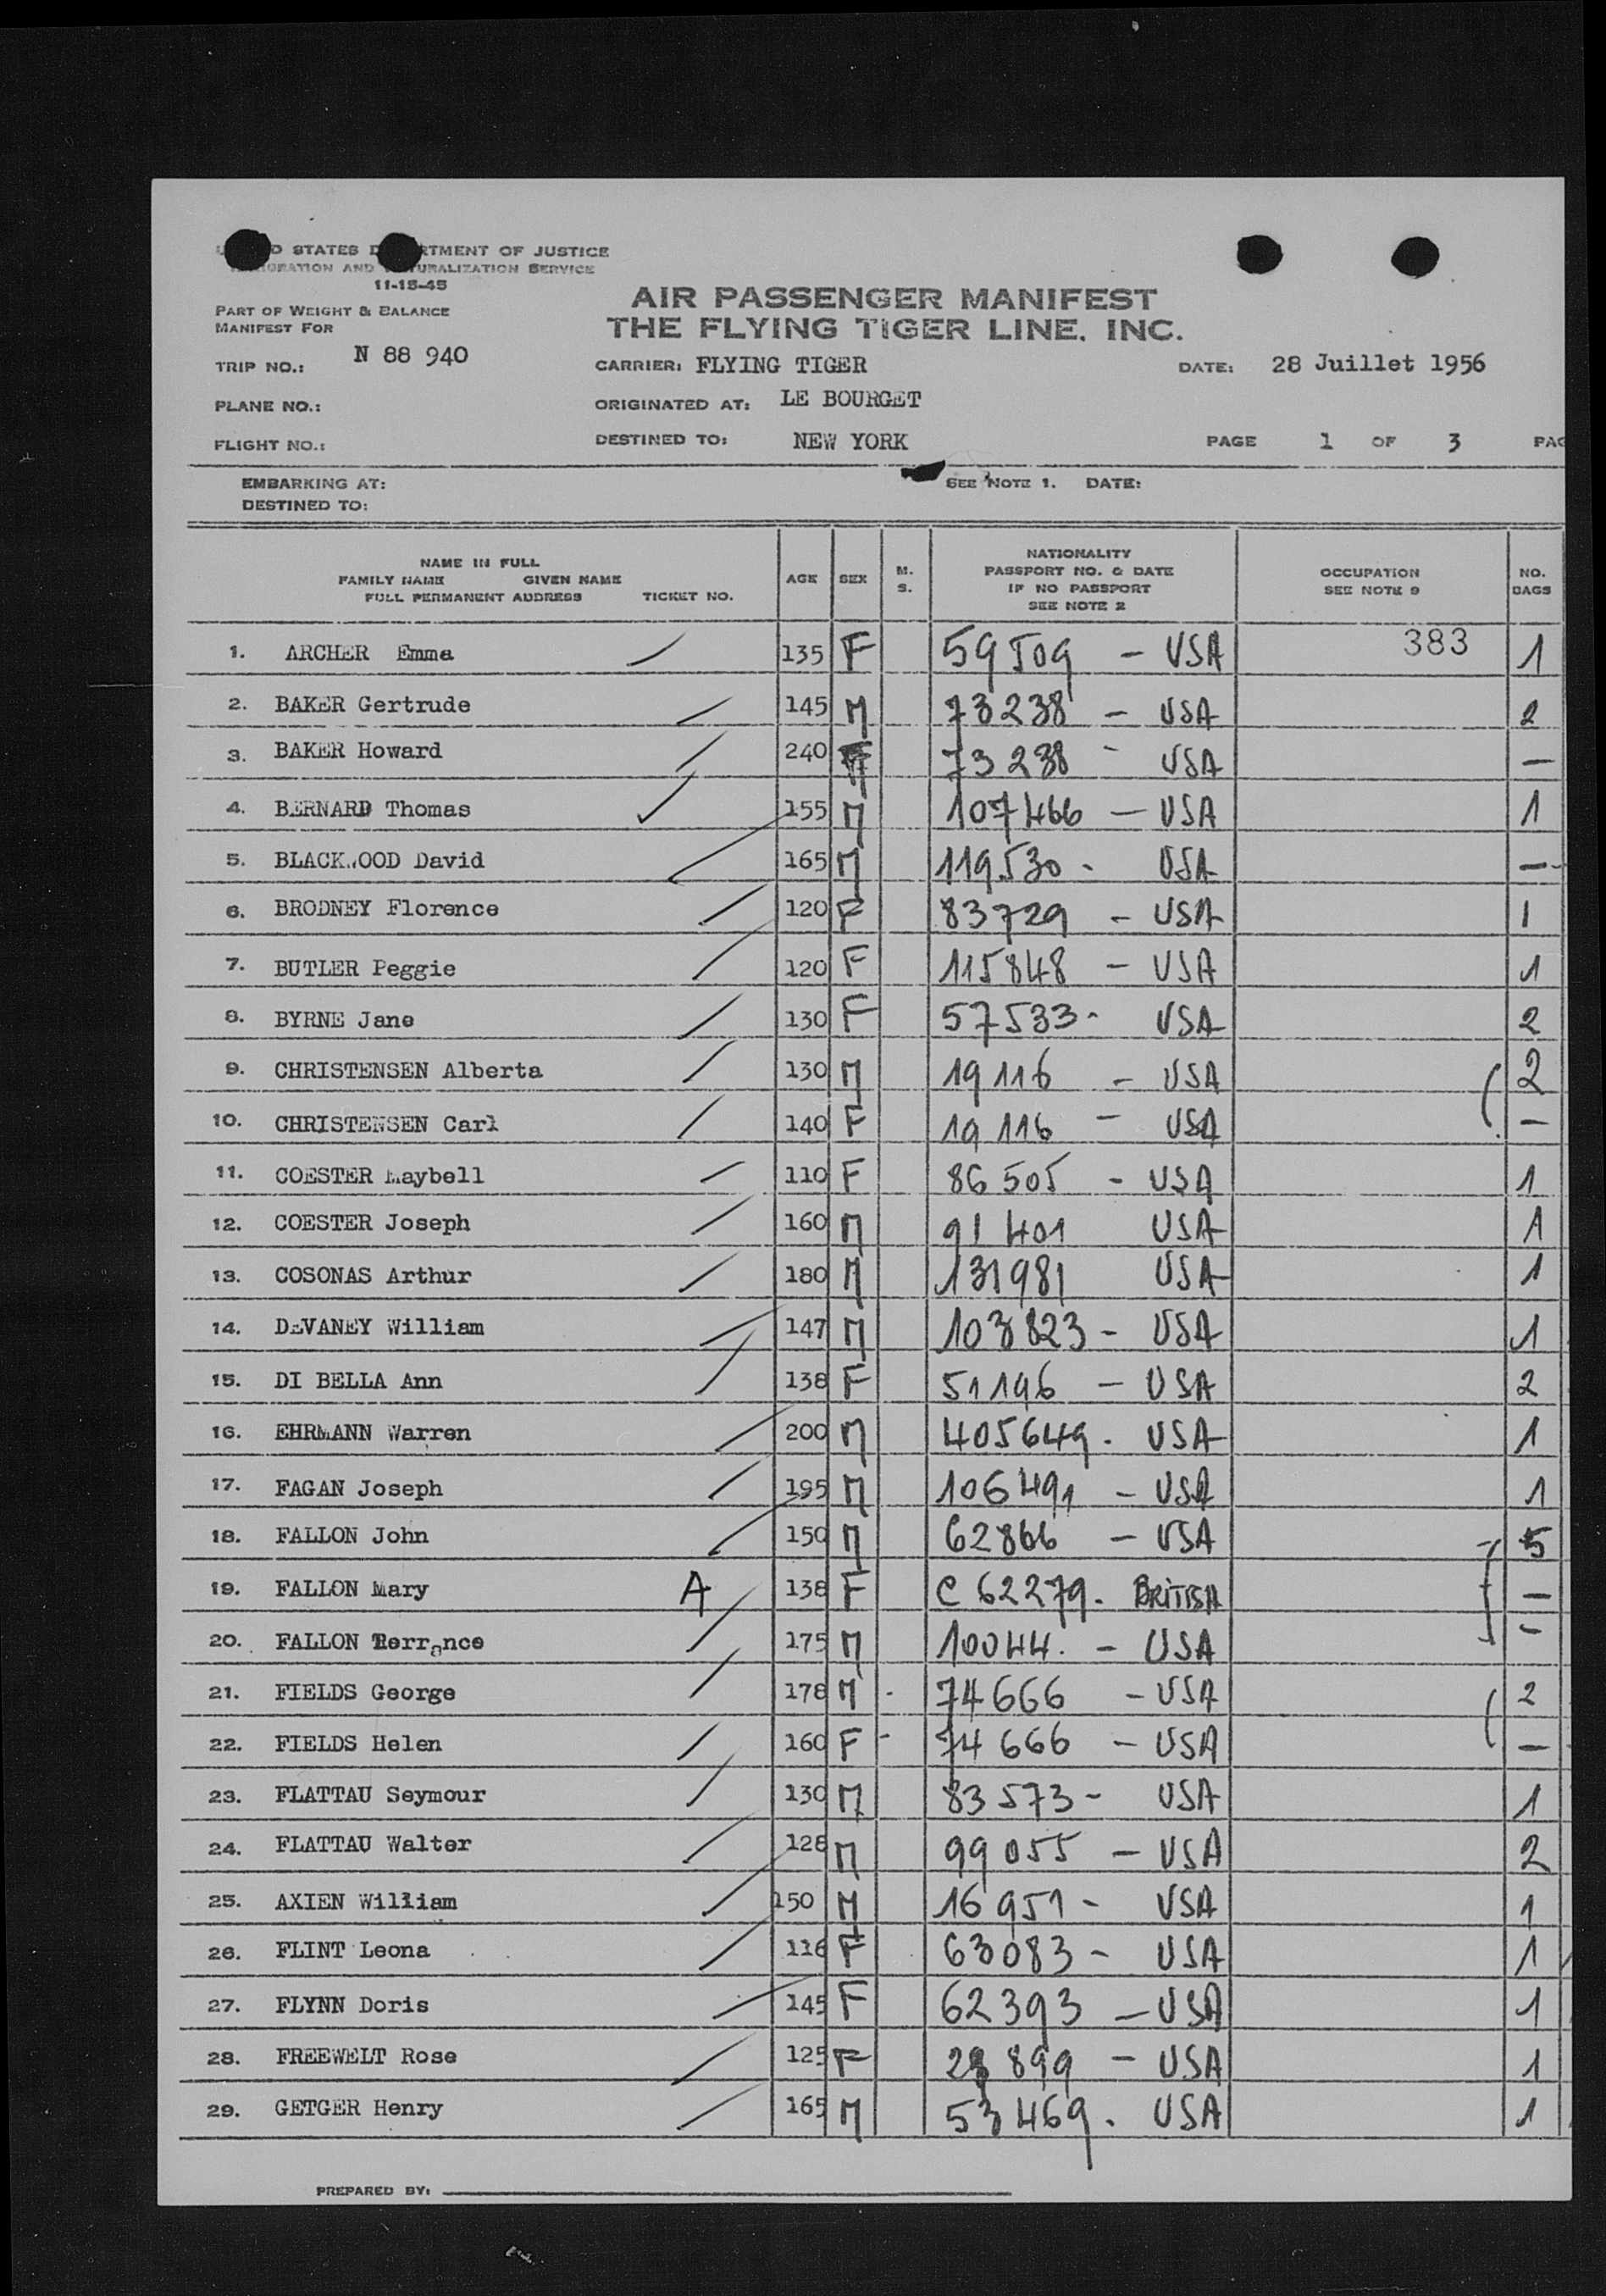 STATES D RTMENT OF JUSTICE
AND SERVICE
11-15-45
PART OF WEIGHT & BALANCE
MANIFEST FOR
AIR PASSENGER MANIFEST
THE FLYING TIGER LINE, INC.
TRIP NO.: N 88 940 CARRIER: FLYING TIGER DATE: 28 Juillet 1956
PLANE NO.: ORIGINATED AT: LE BOURGET
FLIGHT NO.: DESTINED TO: NEW YORK PAGE 1 OF 3 PAG
EMBARKING AT: SEE NOTE 1. DATE:
DESTINED TO:
NAME IN FULL
FAMILY NAME GIVEN NAME
FULL PERMANENT ADDRESS TICKET NO. AGE SEX M. S. NATIONALITY PASSPORT NO. & DATE IF NO PASSPORT SEE NOTE 2 OCCUPATION SEE NOTE 9 NO. BAGS
1. ARCHER Emma 135 F 59509 - USA 383 1
2. BAKER Gertrude 145 M 73238 - USA 2
3. BAKER Howard 240 73238 - USA —
4. BERNARD Thomas 155 M 107466 - USA 1
5. BLACKWOOD David 165 M 119530 - USA —
6. BRODNEY Florence 120 F 83729 - USA 1
7. BUTLER Peggie 120 F 115848 - USA 1
8. BYRNE Jane 130 F 57533 - USA 2
9. CHRISTENSEN Alberta 130 M 19116 - USA 2
10. CHRISTENSEN Carl 140 F 19116 - USA —
11. COESTER Maybell 110 F 86505 - USA 1
12. COESTER Joseph 160 M 91401 USA 1
13. COSONAS Arthur 180 M 131981 USA 1
14. DeVANEY William 147 M 103823 - USA 1
15. DI BELLA Ann 138 F 51196 - USA 2
16. EHRMANN Warren 200 M 405649 . USA 1
17. FAGAN Joseph 195 M 106491 - USA 1
18. FALLON John 150 M 62866 - USA 5
19. FALLON Mary A 138 F C 62279 . BRITISH —
20. FALLON Terrance 175 M 10044 . - USA —
21. FIELDS George 178 M - 74666 - USA 2
22. FIELDS Helen 160 F - 74666 - USA —
23. FLATTAU Seymour 130 M 83573 - USA 1
24. FLATTAU Walter 128 M 99055 - USA 2
25. AXIEN William 150 M 16951 - USA 1
26. FLINT Leona 116 F 63083 - USA 1
27. FLYNN Doris 145 F 62393 - USA 1
28. FREEWELT Rose 125 F 28899 - USA 1
29. GETGER Henry 165 M 53469 . USA 1
PREPARED BY: